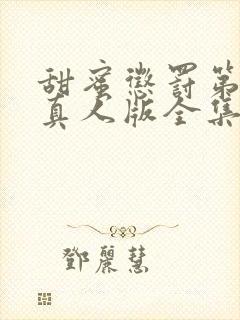 甜蜜懲罰第
真人版全集
鄧麗慧